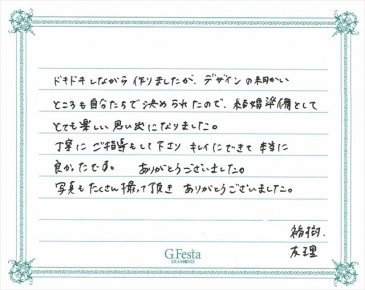 ドキドキしながら作りましたが、デザインの細かい
ところも自分たちで決められたので、結婚準備として
とても楽しい思い出になりました。
丁寧にご指導もして下さりキレイにできて本当に
良かったです。 ありがとうございました。
写真もたくさん撮って頂きありがとうございました。
裕樹.
友理
G.Festa
DIAMOND